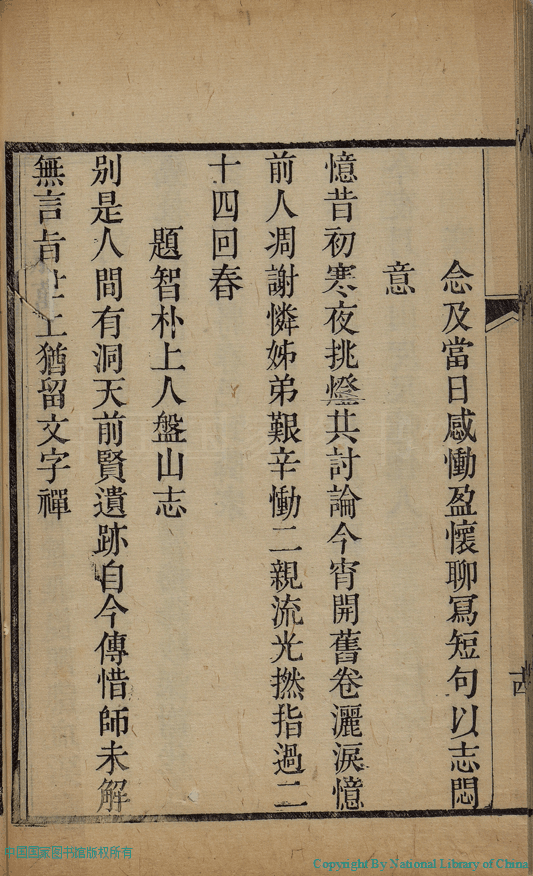 念及當日感慟盈懷聊寫短句以志悶
意
憶昔初寒夜挑燈共討論今宵開舊卷灑淚憶
前人凋謝憐姊弟艱辛慟二親流光撚指過二
十四回春
題智朴上人盤山志
別是人間有洞天前賢遺跡自今傳惜師未解
無言旨 上猶留文字禪
中国国家图书馆版权所有
Copyright By National Library of China